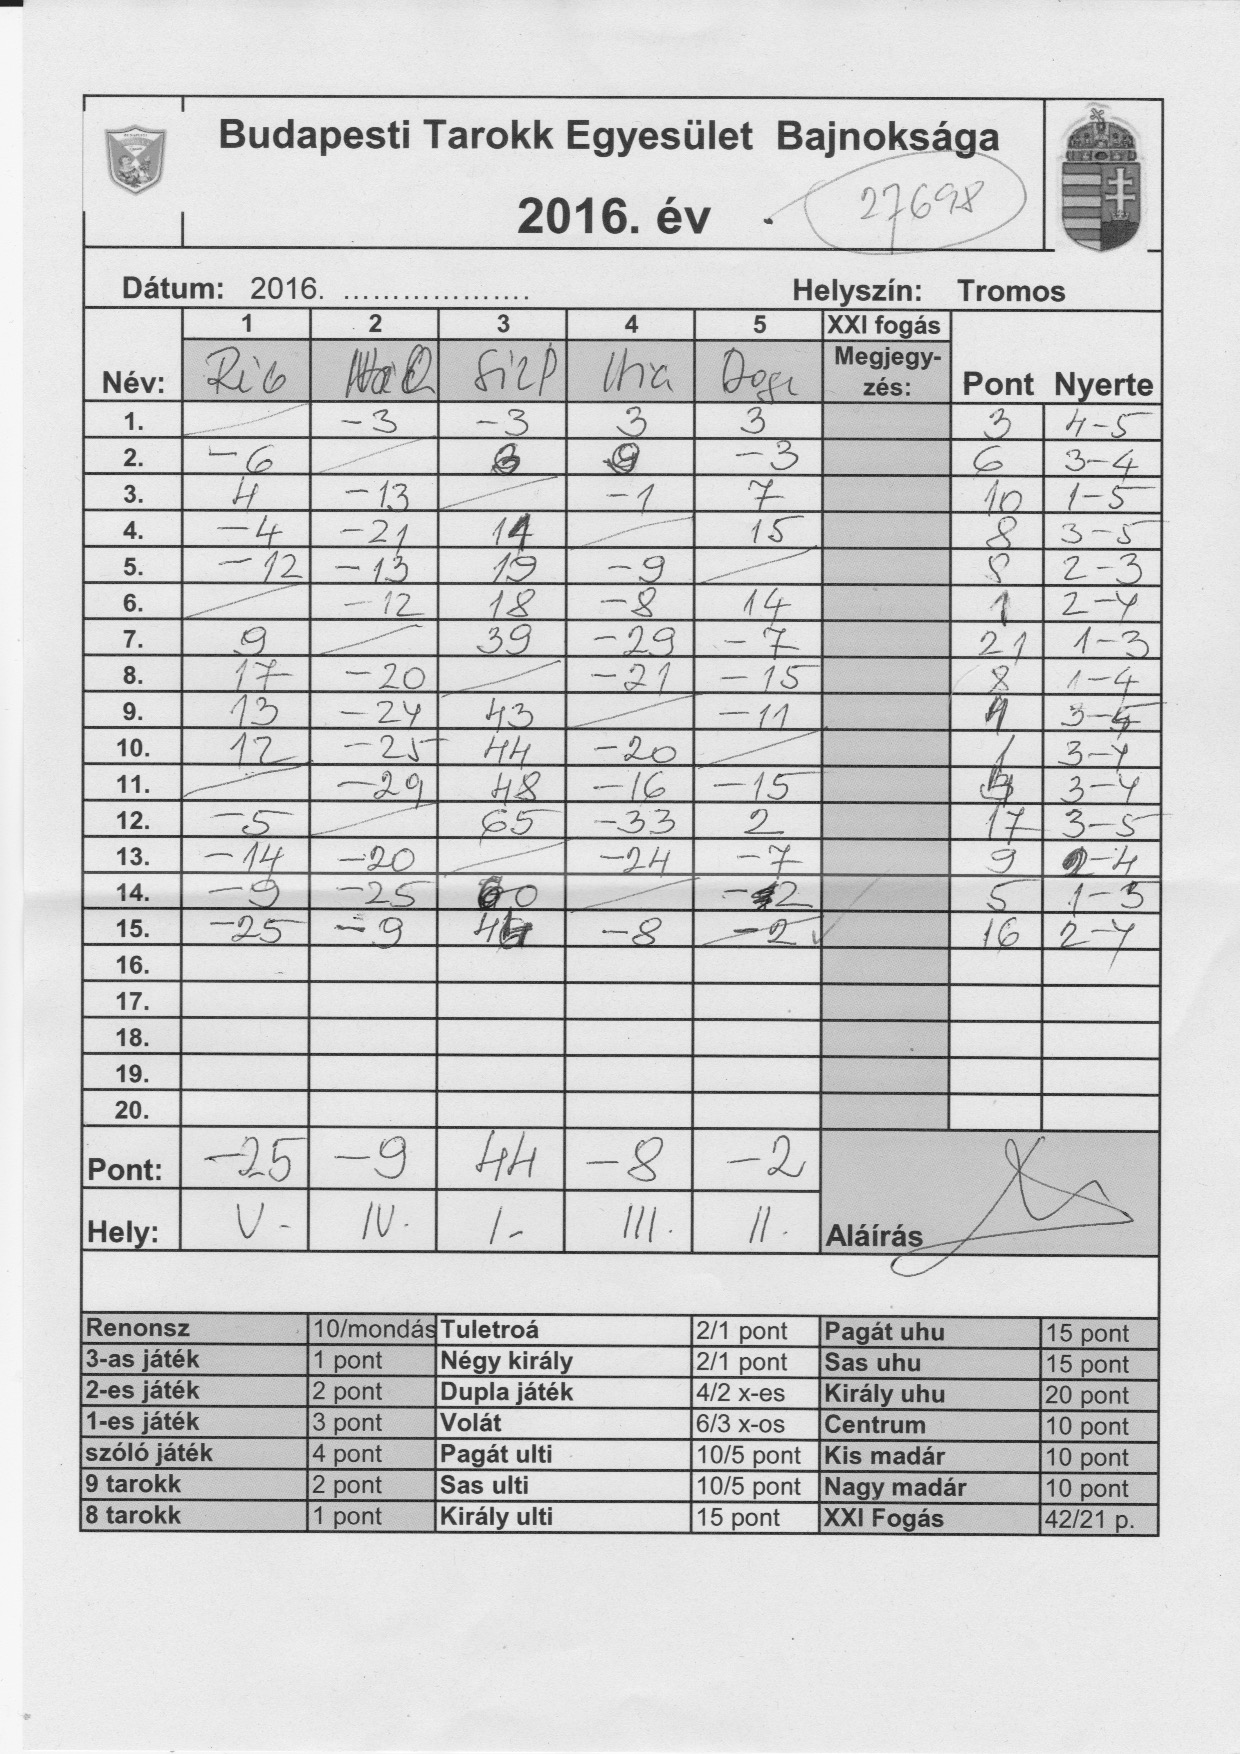 Budapesti Tarokk Egyesület Bajnoksága
2016. év 27698
Dátum: 2016. ................... Helyszín: Tromos
1 2 3 4 5 XXI fogás
Név: SizP Megjegy-zés: Pont Nyerte
1. -3 -3 3 3 3 4-5
2. -6 3 9 -3 6 3-4
3. 4 -13 -1 7 10 1-5
4. -4 -21 14 15 8 3-5
5. -12 -13 19 -9 8 2-3
6. -12 18 -8 14 1 2-4
7. 9 39 -29 -7 21 1-3
8. 17 -20 -21 -15 8 1-4
9. 13 -24 43 -11 4 3-5
10. 12 -25 44 -20 1 3-4
11. -29 48 -16 -15 4 3-4
12. -5 65 -33 2 17 3-5
13. -14 -20 -24 -7 9 2-4
14. -9 -25 60 -2 5 1-5
15. -25 -9 44 -8 -2 16 2-4
16.
17.
18.
19.
20.
Pont: -25 -9 44 -8 -2
Hely: V. IV. I. III. II. Aláírás
Renonsz 10/mondás Tuletroá 2/1 pont Pagát uhu 15 pont
3-as játék 1 pont Négy király 2/1 pont Sas uhu 15 pont
2-es játék 2 pont Dupla játék 4/2 x-es Király uhu 20 pont
1-es játék 3 pont Volát 6/3 x-os Centrum 10 pont
szóló játék 4 pont Pagát ulti 10/5 pont Kis madár 10 pont
9 tarokk 2 pont Sas ulti 10/5 pont Nagy madár 10 pont
8 tarokk 1 pont Király ulti 15 pont XXI Fogás 42/21 p.